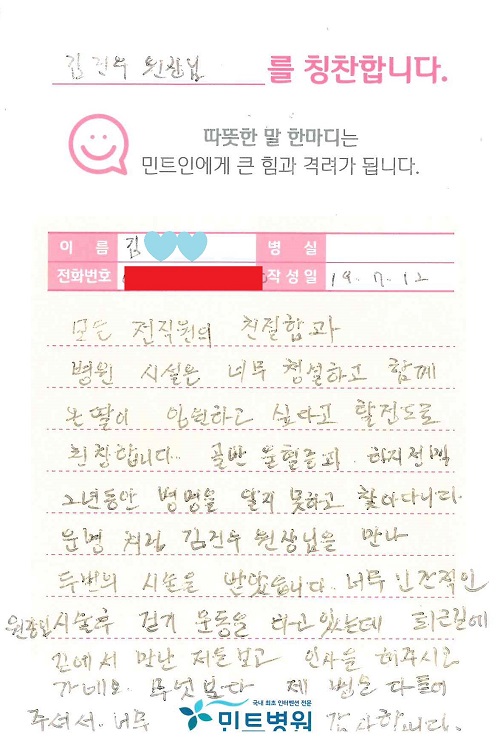 김건우 원장님 를 칭찬합니다.
따뜻한 말 한마디는
민트인에게 큰 힘과 격려가 됩니다.
이 름 김 병 실
전화번호 작성일 19. 7. 12
모든 전직원의 친절함과
병원 시설은 너무 청결하고 함께
온 딸이 입원하고 싶다고 할정도로
칭찬합니다. 골반 울혈증과 하지정맥
2년동안 병명을 알지 못하고 찾아다니다.
운명 처럼 김건우 원장님을 만나
두번의 시술을 받았습니다. 너무 인간적인
원장님 시술후 걷기 운동을 하고 있는데 퇴근길에
길에서 만난 저를 보고 인사를 해주시고
가네요. 무엇보다 제 병을 다들어
주셔서. 너무 감사합니다.
국내 최초 인터벤션 전문
민트병원